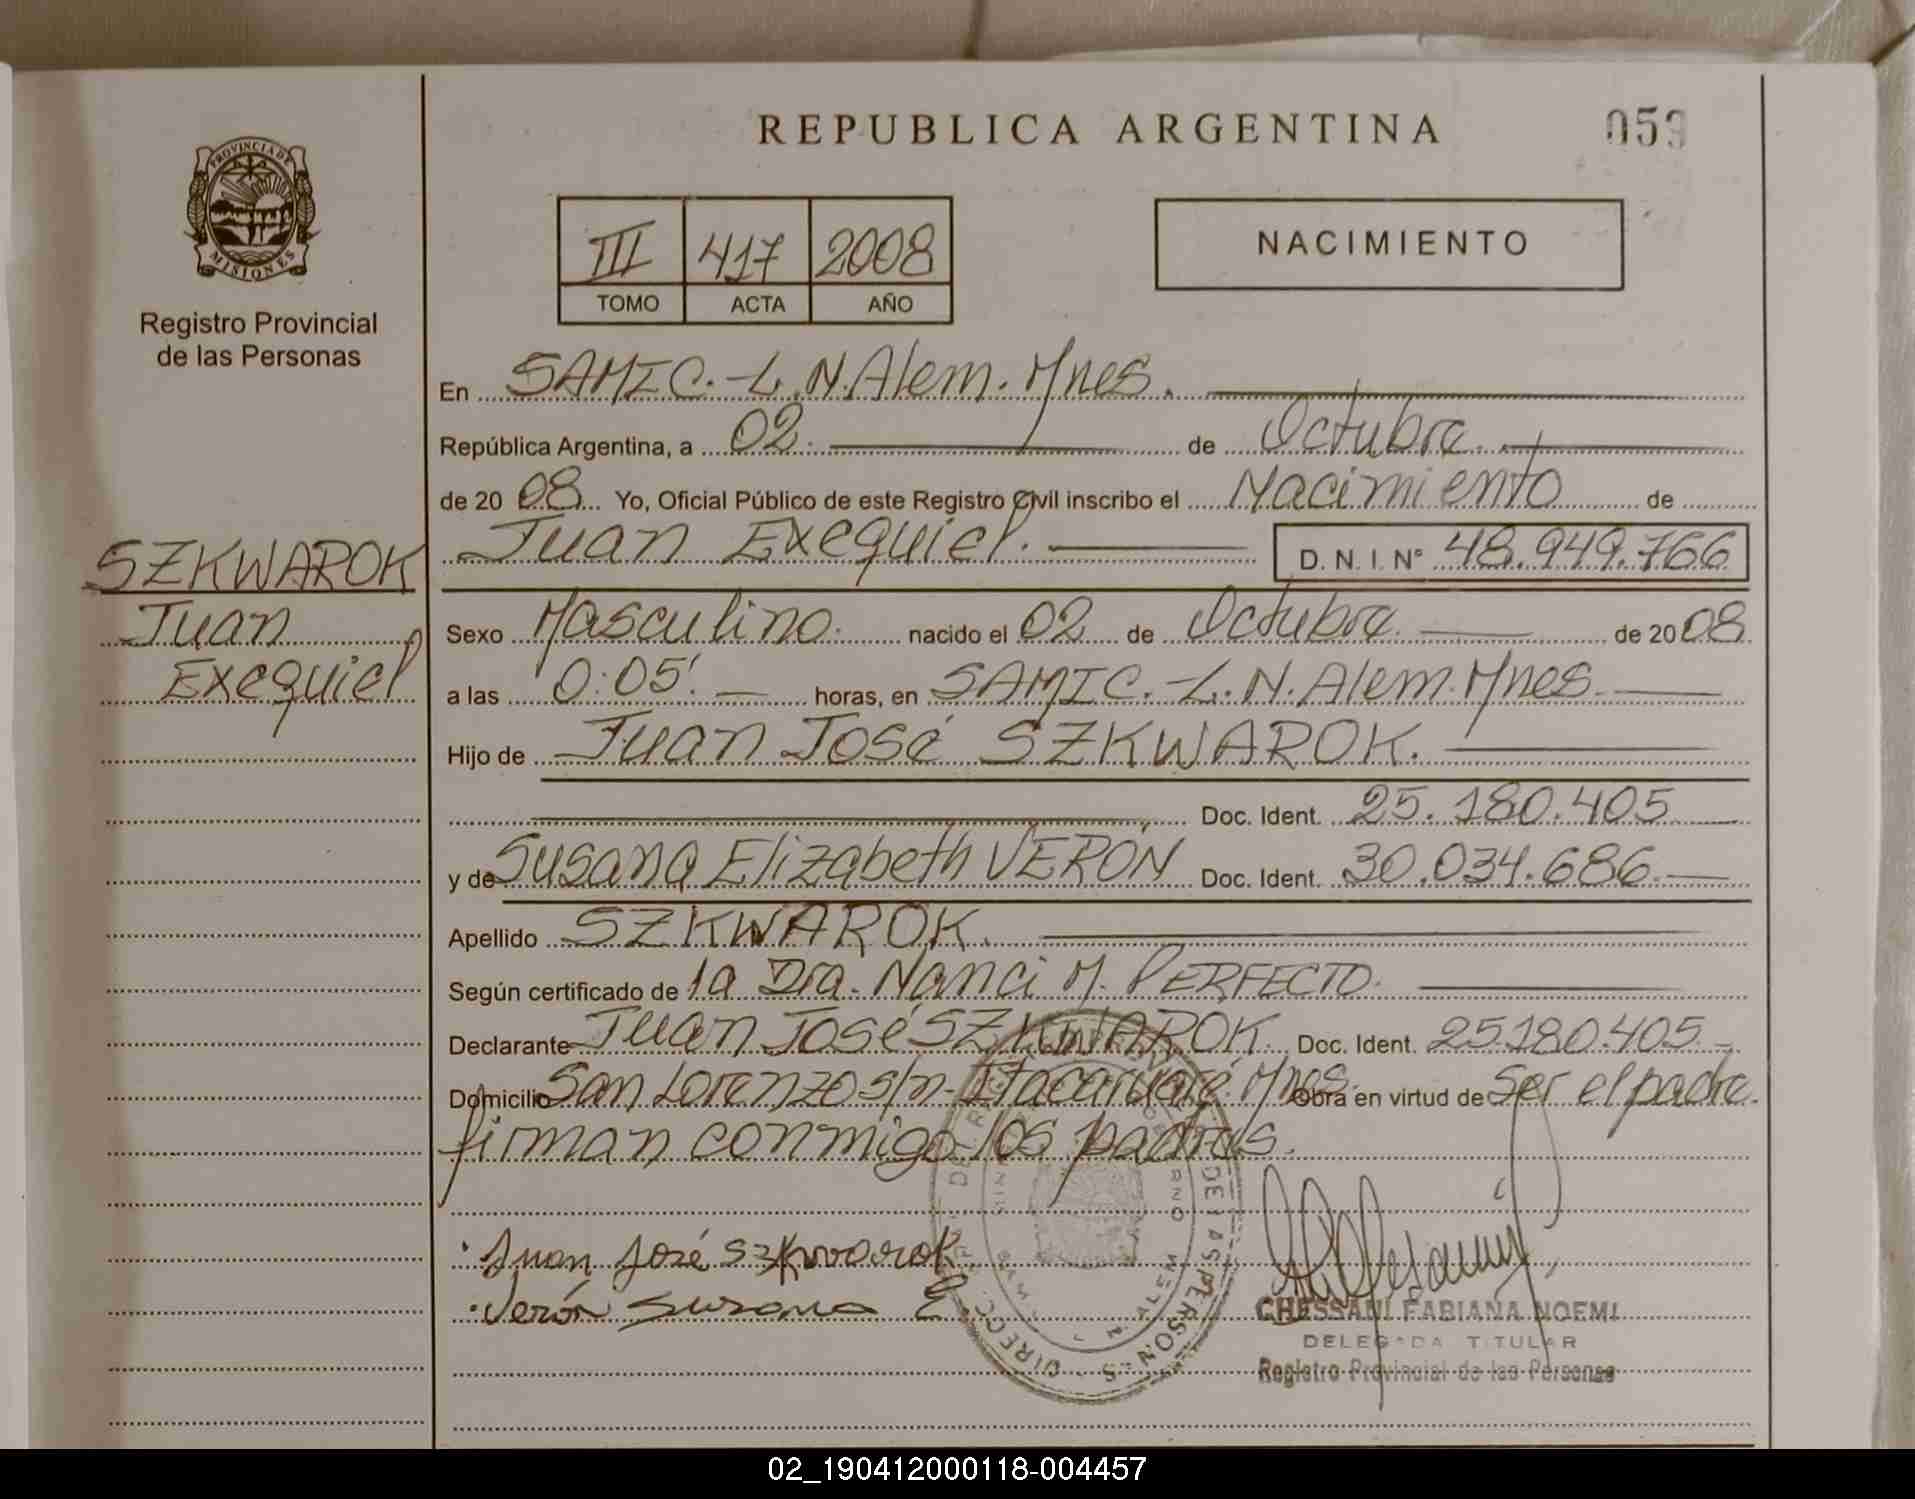 REPUBLICA ARGENTINA
059
PROVINCIA DE
MISIONES
Registro Provincial
de las Personas
III 417 2008
TOMO ACTA AÑO
NACIMIENTO
En SAMIC.-L.N.Alem.Mnes.
República Argentina, a 02. de Octubre.
de 20 08 Yo, Oficial Público de este Registro Civil inscribo el Nacimiento de
Juan Exequiel. D. N. I. Nº 48.949.766
SZKWAROK
Juan
Exequiel
Sexo Masculino. nacido el 02 de Octubre. de 20 08
a las 0:05'. horas, en SAMIC.-L.N.Alem.Mnes.
Hijo de Juan José SZKWAROK.
Doc. Ident. 25.180.405
y de Susana Elizabeth VERÓN Doc. Ident. 30.034.686.
Apellido SZKWAROK.
Según certificado de la Dra. Nanci M. PERFECTO.
Declarante Juan José SZKWAROK. Doc. Ident. 25.180.405.
Domicilio San Lorenzo s/n-Itacaruaré.Mnes. Obra en virtud de ser el padre.
firman conmigo los padres.
Juan José Szkwarok
Verón Susana E.
CHESSANI FABIANA NOEMI
DELEGADA TITULAR
Registro Provincial de las Personas
02_190412000118-004457